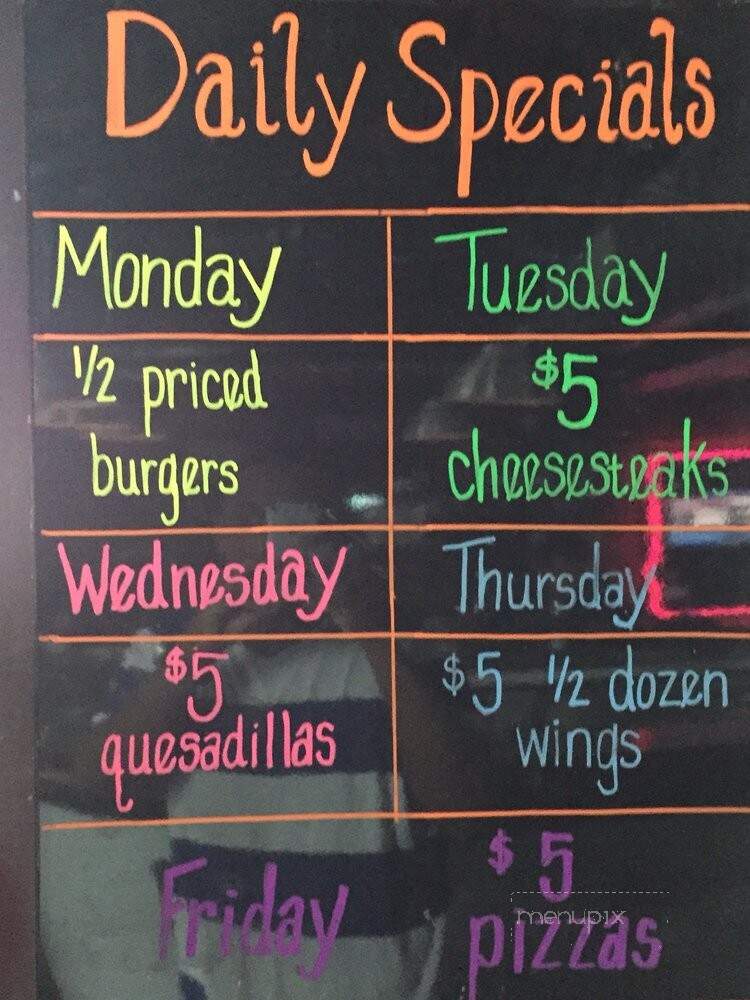 Daily Specials
Monday
Tuesday
1/2 priced
burgers
$5
cheesesteaks
Wednesday
Thursday
$5
quesadillas
$5 1/2 dozen
wings
Friday
$5
pizzas
menupix